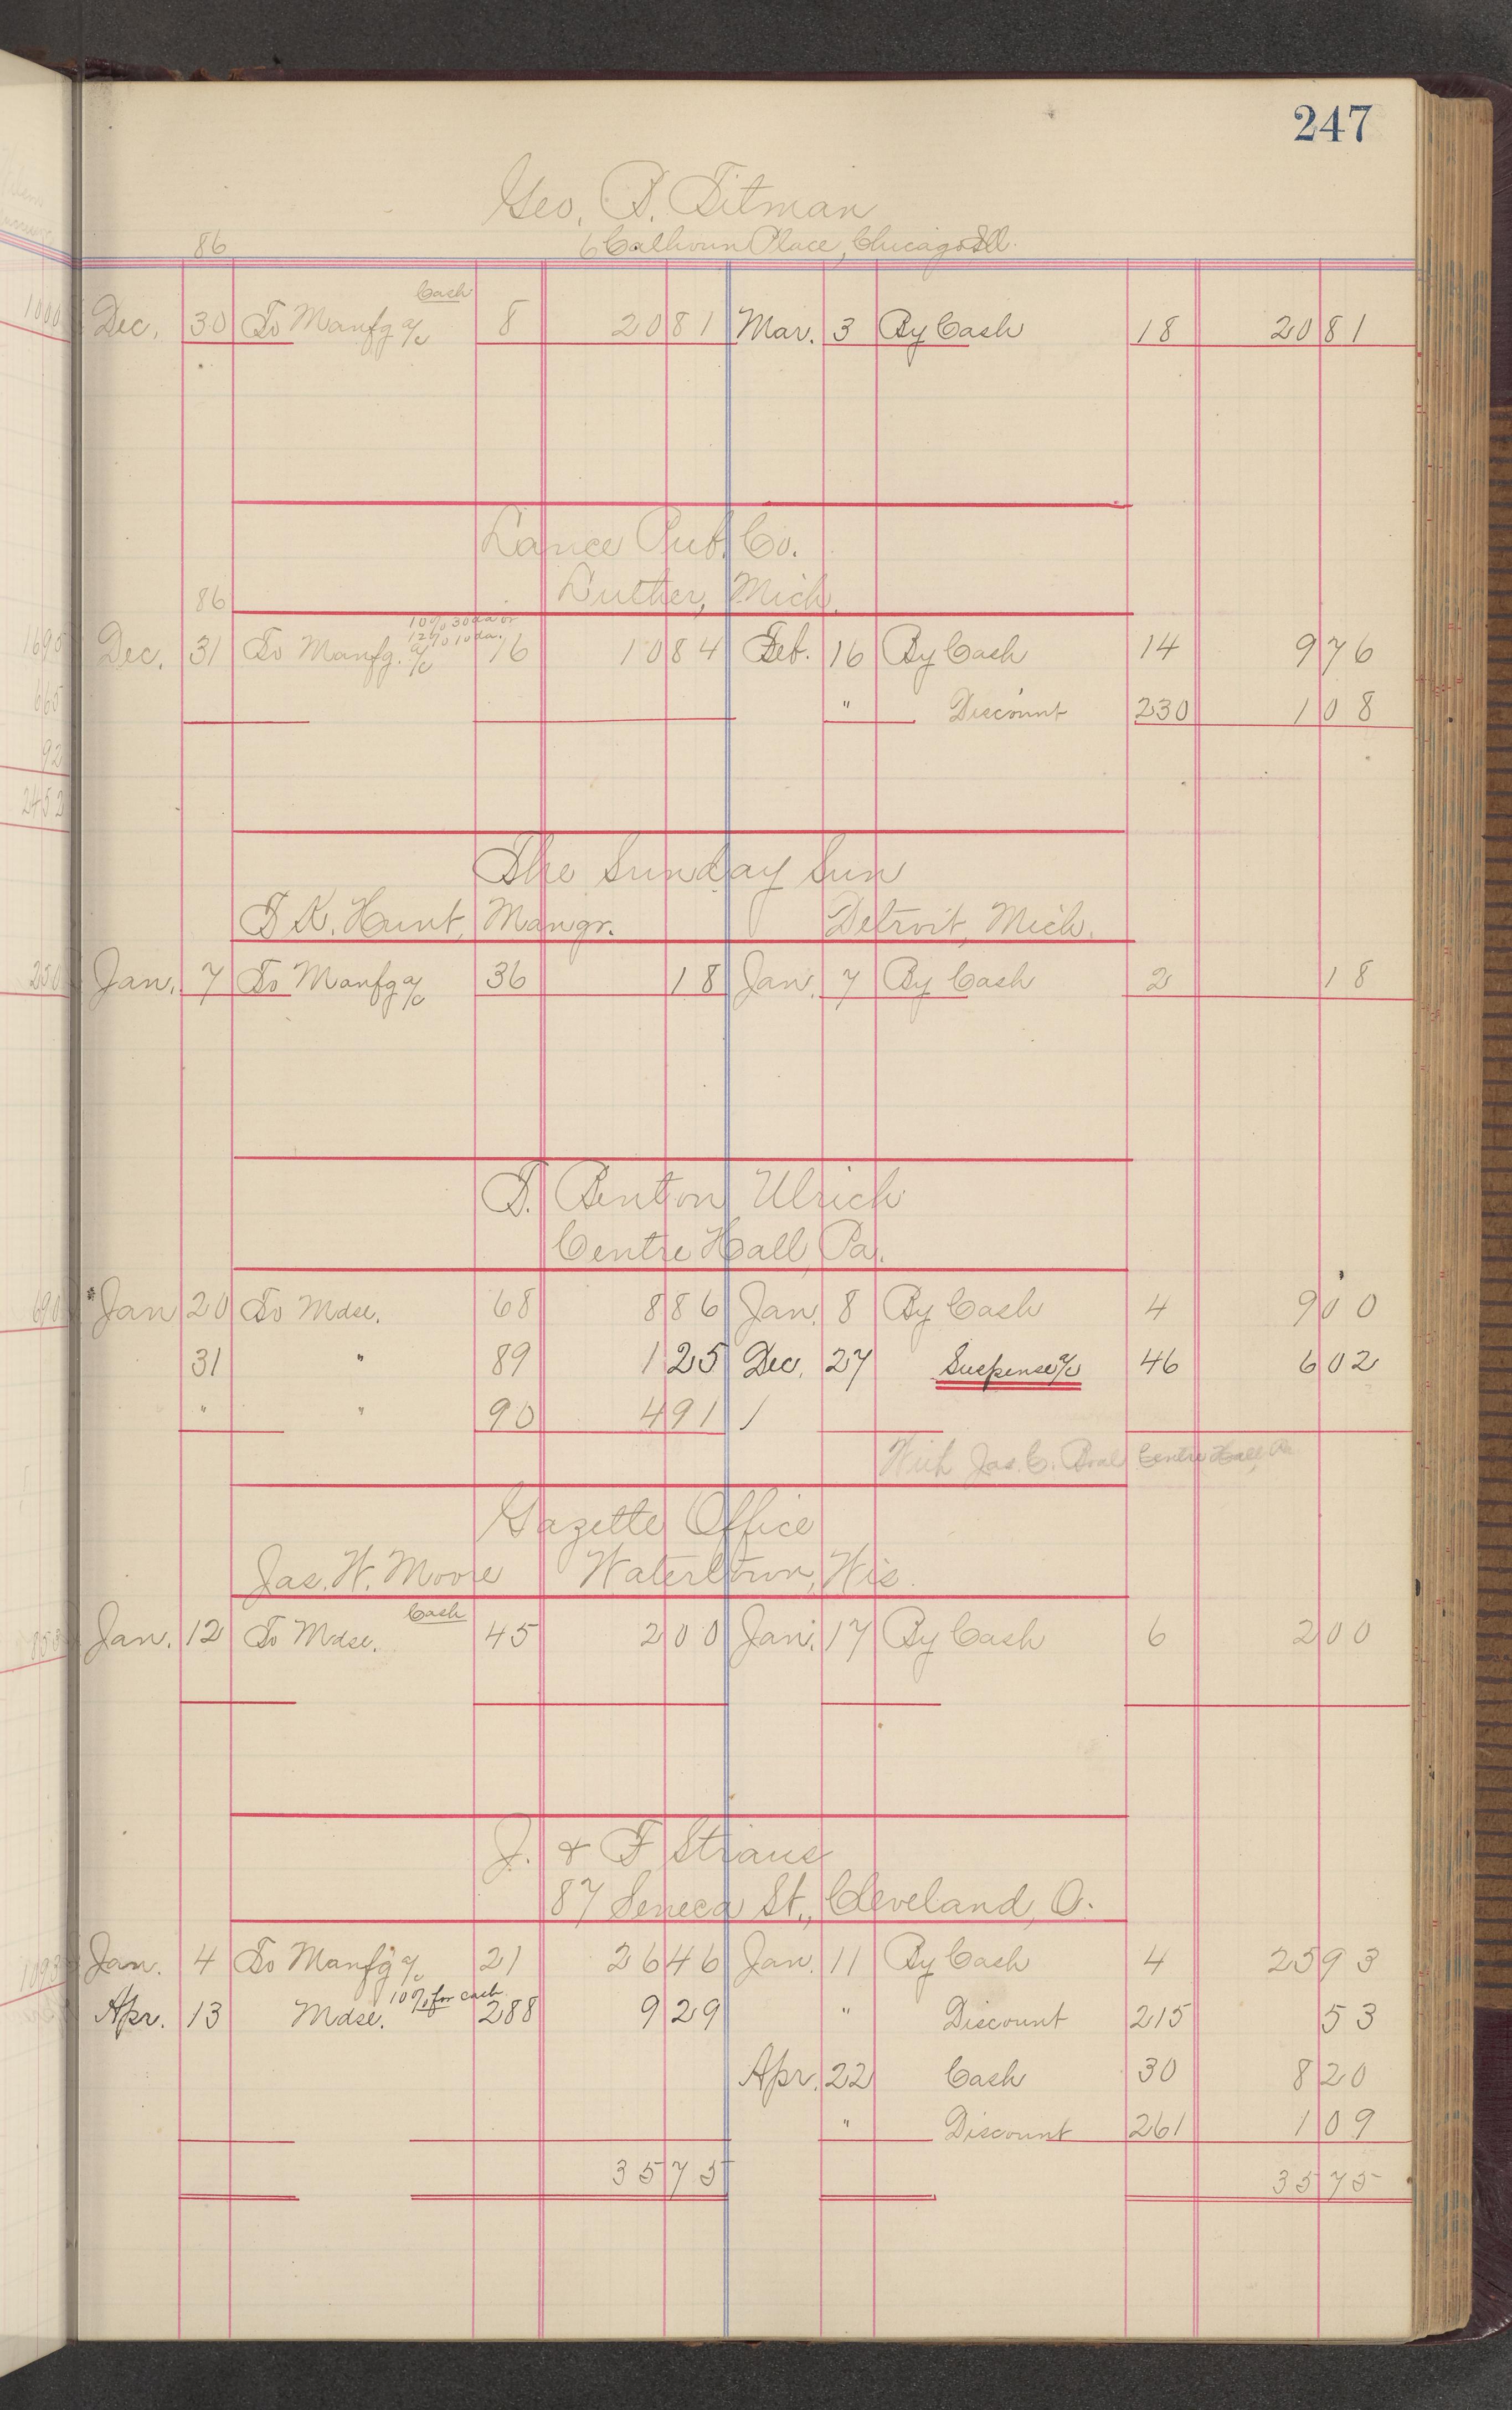 247
Geo. P. Titman
86 6 Calhoun Place, Chicago Ill.
Cash
Dec. 30 To Manfg a/c 8 20 81 Mar. 3 By Cash 18 20 81
Lance Pub. Co.
86 Luther, Mich.
10% 30 da or
12% 10 da.
Dec. 31 To Manfg. a/c 16 10 84 Feb. 16 By Cash 14 9 76
" Discount 230 1 08
The Sunday Sun
F K. Hunt, Mangr. Detroit, Mich.
Jan. 7 To Manfg a/c 36 18 Jan. 7 By Cash 2 18
T. Benton Ulrich
Centre Hall, Pa.
Jan 20 To Mdse. 68 8 86 Jan. 8 By Cash 4 9 00
31 " 89 1 25 Dec. 27 Suspense a/c 46 6 02
" " 90 4 91 /
With Jas. C. Boal Centre Hall, Pa
Gazette Office
Jas. W. Moore Watertown, Wis.
Cash
Jan. 12 To Mdse. 45 2 00 Jan. 17 By Cash 6 2 00
J. & F Straus
87 Seneca St., Cleveland, O.
Jan. 4 To Manfg a/c 21 26 46 Jan. 11 By Cash 4 25 93
10% for cash
Apr. 13 Mdse. 288 9 29 " Discount 215 53
Apr. 22 Cash 30 8 20
" Discount 261 1 09
35 75 35 75
1000
1690
665
92
2452
250
690